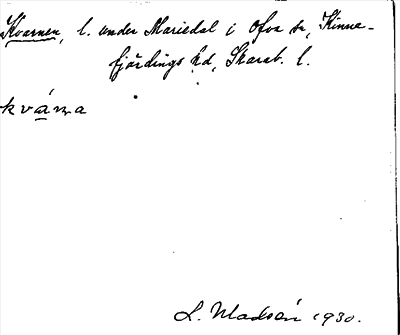 Kvarnen, l. under Mariedal i Ova sn, Kinne-
fjärdings hd, Skarab. l.
kvána
L. Madsén 1930.